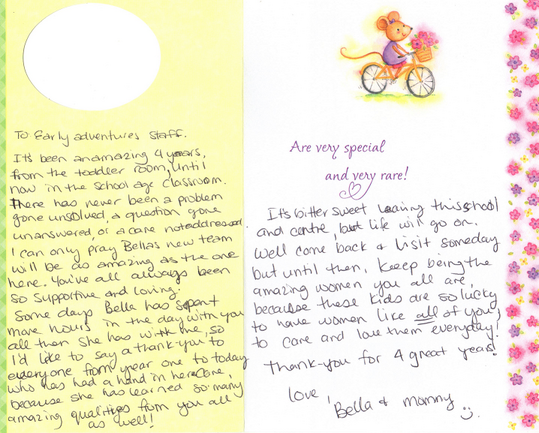 To Early adventures Staff.
It's been an amazing 4 years,
from the toddler room, until
now in the school age classroom.
There has never been a problem
gone unsolved, a question gone
unanswered, or a care not addressed.
I can only pray Bella's new team
will be as amazing as the one
here. You've all always been
so supportive and loving.
Some days Bella has spent
more hours in the day with you
all then she has with me, so
I'd like to say a thank-you to
everyone from year one to today
who has had a hand in her care,
because she has learned so many
amazing qualities from you all
as well!
Are very special
and very rare!
It's bitter sweet leaving this school
and centre, but life will go on.
Well come back & visit someday
but until then, keep being the
amazing women you all are,
because these kids are so lucky
to have women like all of you,
to care and love them everyday!
Thank-you for 4 great years!
love,
Bella & mommy